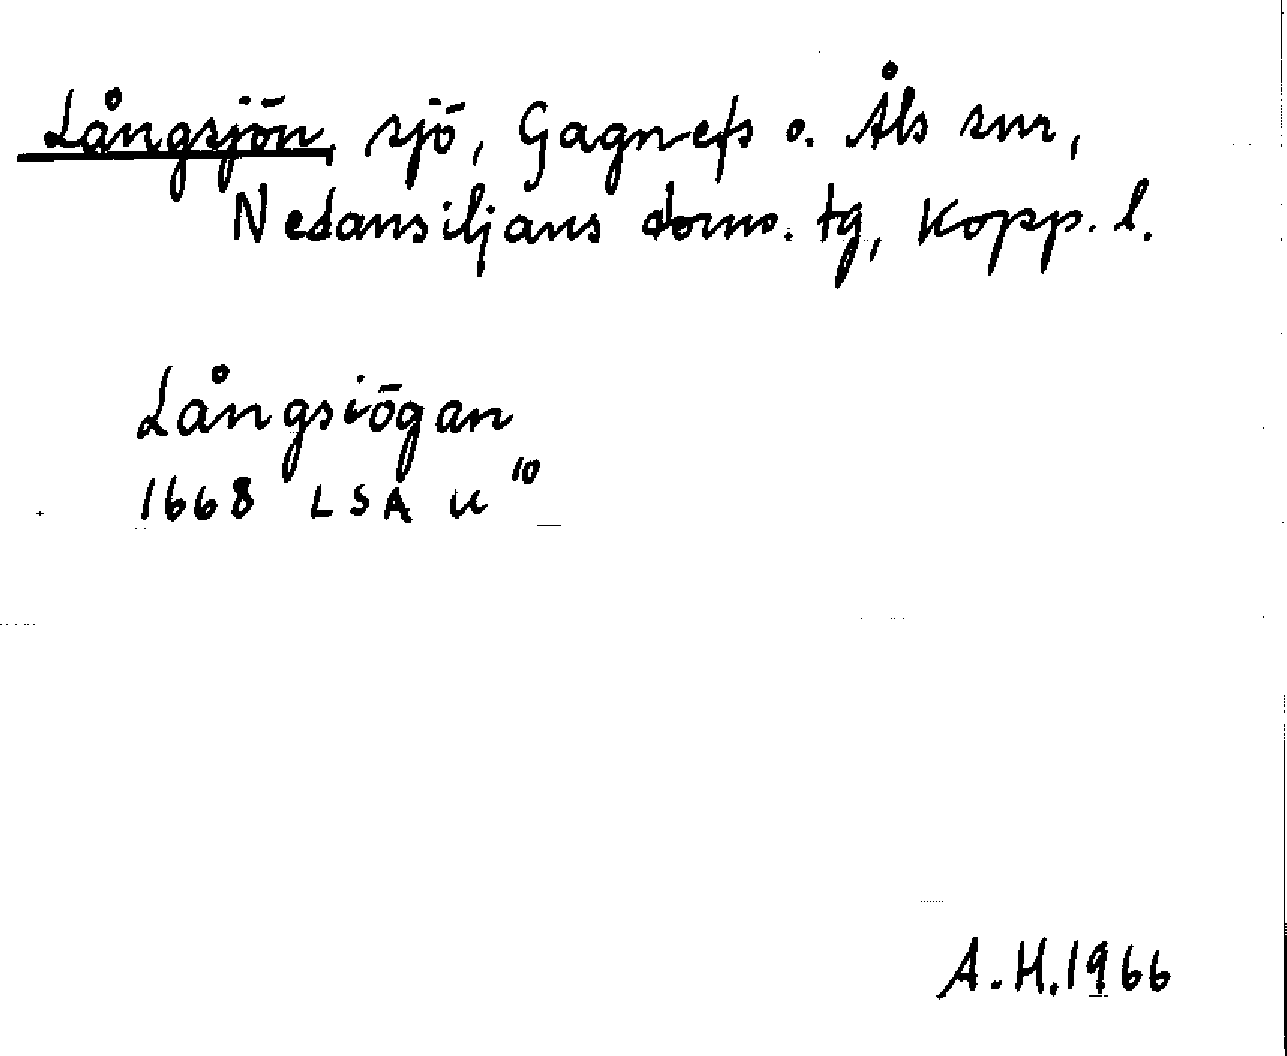 Långsjön, sjö, Gagnefs o. Åls snr,
Nedansiljans doms. tg, Kopp. l.
Långsiögan
1668 LSA U 10
A.H. 1966